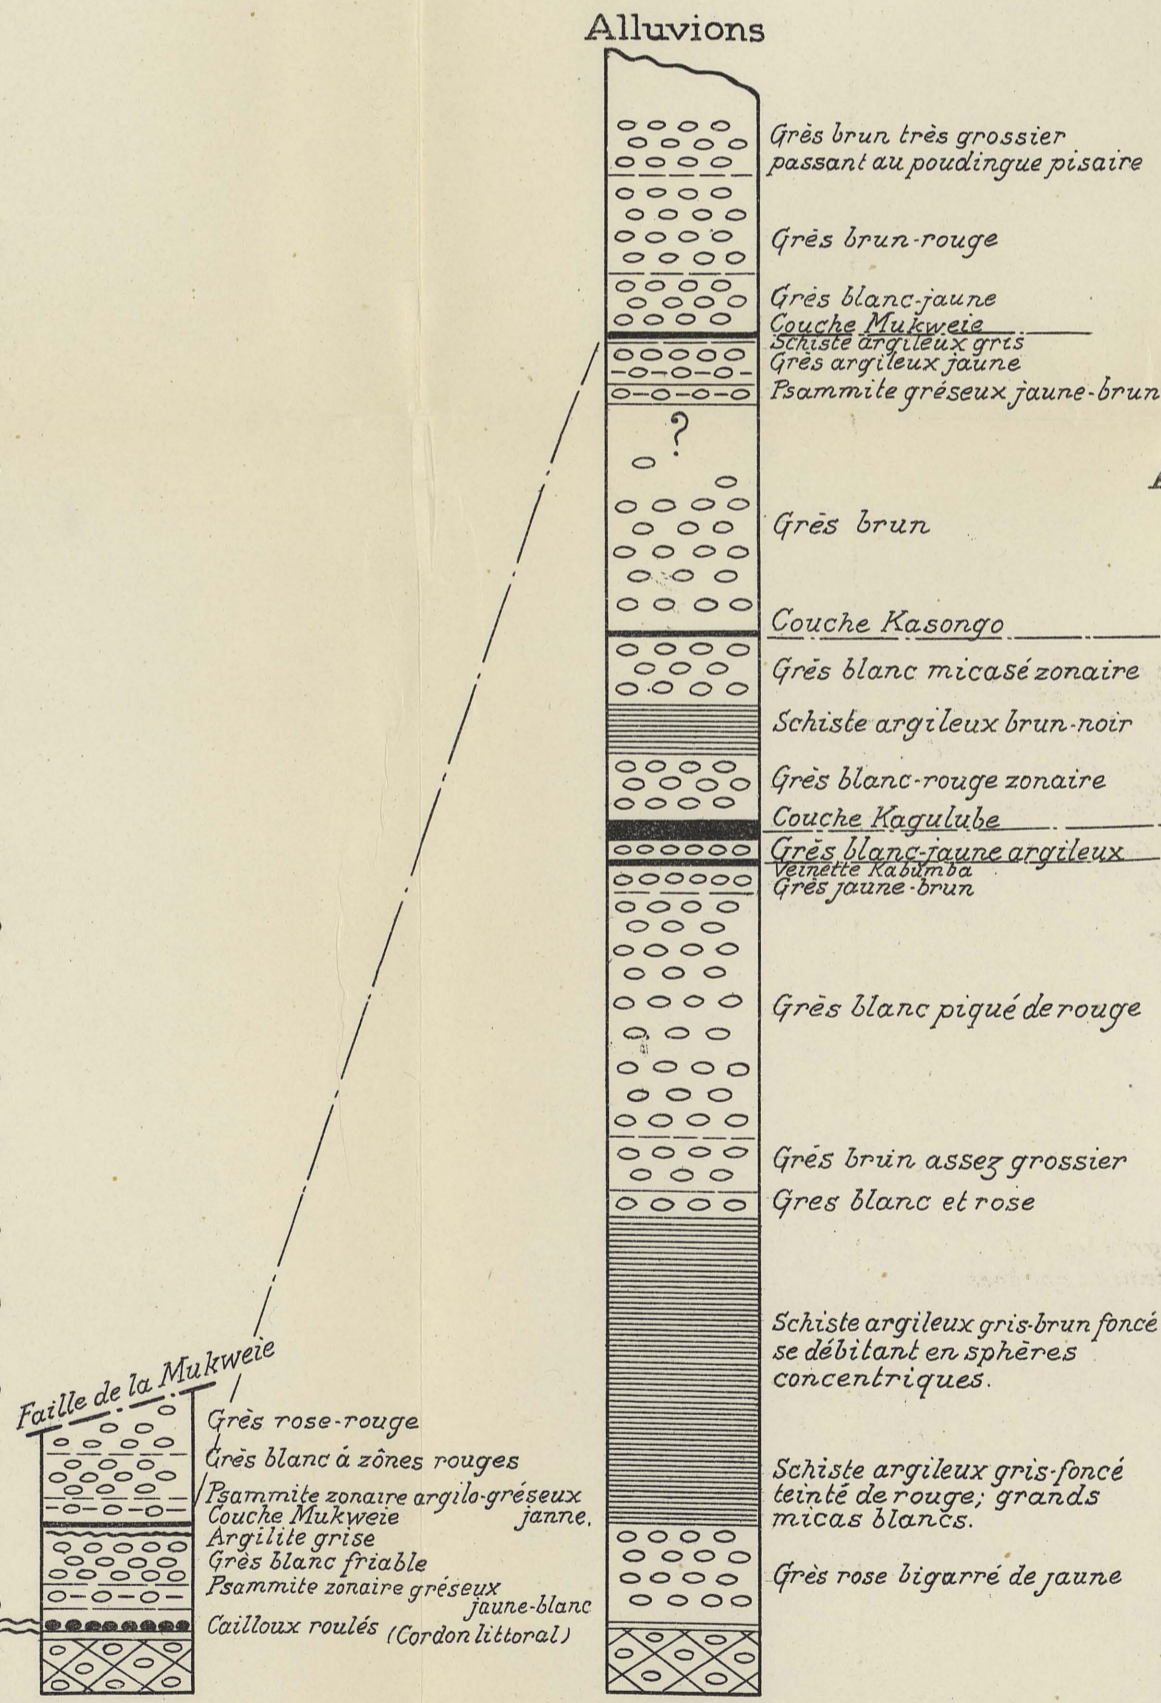 Alluvions
Grès brun très grossier
passant au poudingue pisaire
Grès brun-rouge
Grès blanc-jaune
Couche Mukweie
Schiste argileux gris
Grès argileux jaune
Psammite gréseux jaune-brun
?
Grès brun
Couche Kasongo
Grès blanc micasé zonaire
Schiste argileux brun-noir
Grès blanc-rouge zonaire
Couche Kagulube
Grès blanc-jaune argileux
Veinette Kabumba
Grès jaune-brun
Grès blanc piqué de rouge
Grès brun assez grossier
Gres blanc et rose
Schiste argileux gris-brun foncé
se débitant en sphères
concentriques.
Schiste argileux gris-foncé
teinté de rouge; grands
micas blancs.
Grès rose bigarré de jaune
Faille de la Mukweie
Grès rose-rouge
Grès blanc á zônes rouges
Psammite zonaire argilo-gréseux
janne.
Couche Mukweie
Argilite grise
Grès blanc friable
Psammite zonaire gréseux
jaune-blanc
Cailloux roulés (Cordon littoral)